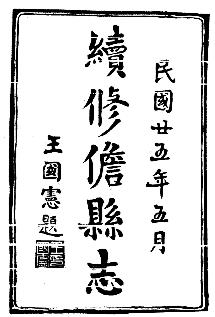 民國廿五年五月
續修儋縣志
王國憲題